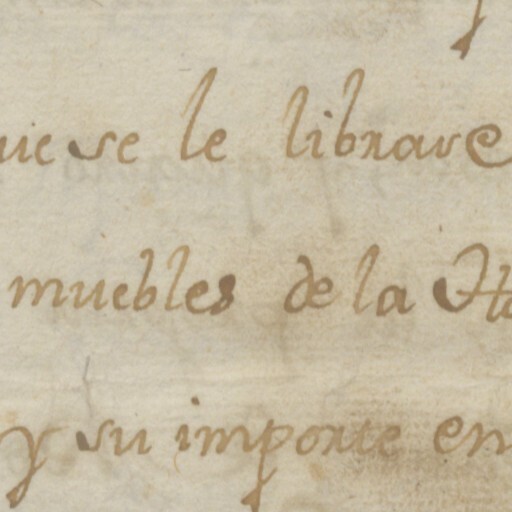 se le librar
muebles de la
y su importe en